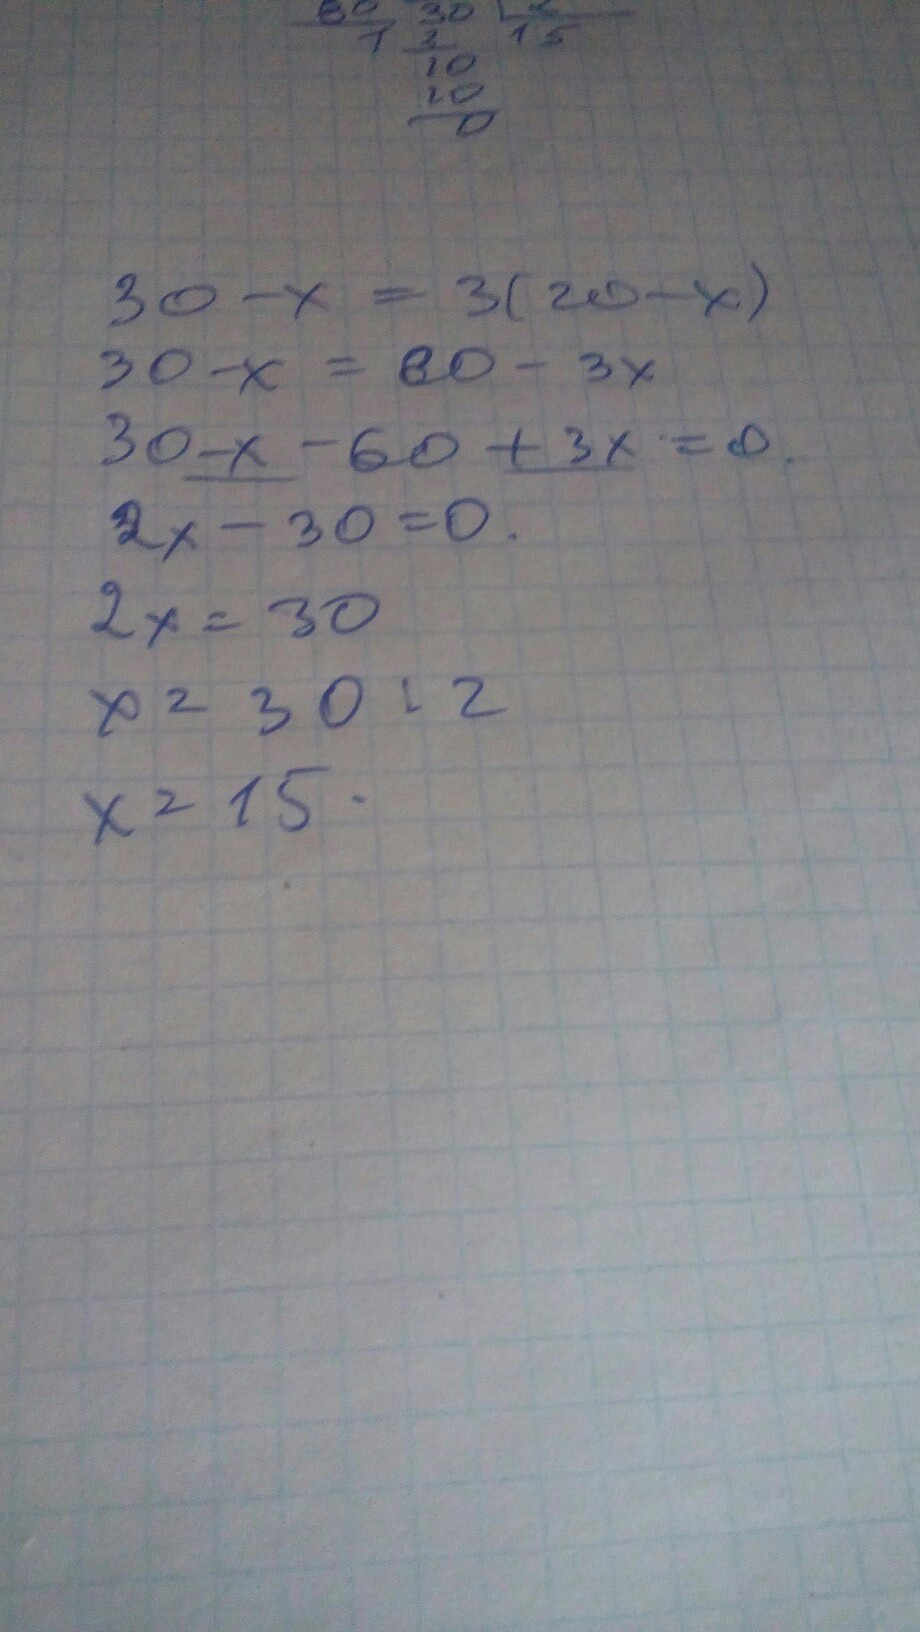 60 30 2
1 2 15
10
10
0
30 - x = 3(20 - x)
30 - x = 60 - 3x
30 - x - 60 + 3x = 0.
2x - 30 = 0.
2x = 30
x = 30 : 2
x = 15.